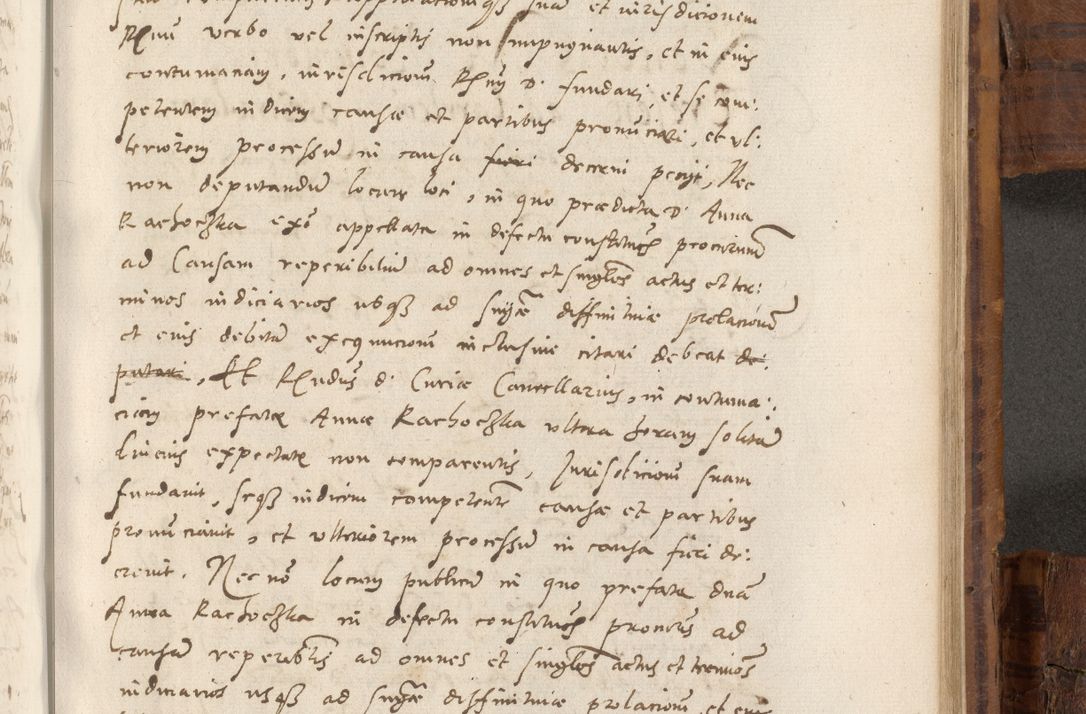 suam et iurisdicionem
Rdum verbo vel inscriptis non impugnantis, et in eius
contumaciam, iurisdicionem Rdum D. fundari, et se com:
petentem iudicem causæ et partibus pronunciari, et ul:
teriorem processum in causa fieri decerni peciit, Nec
non deputandum locum loci, in quo prædicta D. Anna
Rachoczka ex appellata in defectu constituti procurum
ad Causam reperibilium ad omnes et singulos actus et ter:
minos iudiciarios usque ad suam diffinitiuæ prolacionem
et eius debitam exequucionem inclusiue citari debeat de:
putari, Et Rndus d. Curiæ Cancellarius, in contuma:
ciam prefatæ Annæ Rachoczka ultra horam solitam
diucius expectatæ non comparentis, Jurisdicionem suam
fundauit, seque iudicem competentem causæ et partibus
pronunciauit, et ulteriorem processum in causa fieri de:
creuit. Nec non locum publicum in quo prefata dna
Anna Rachoczka in defectu constituti procuris ad
causam reperibilis ad omnes et singulos actus et terminos
iudiciarios usque ad suam diffinitiuæ prolacionem, et eius